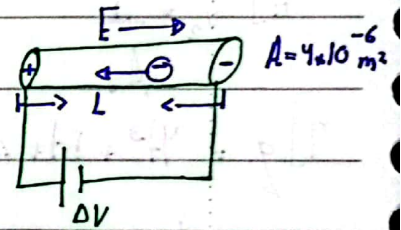 E
+ − − A = 4×10⁻⁶ m²
L
ΔV